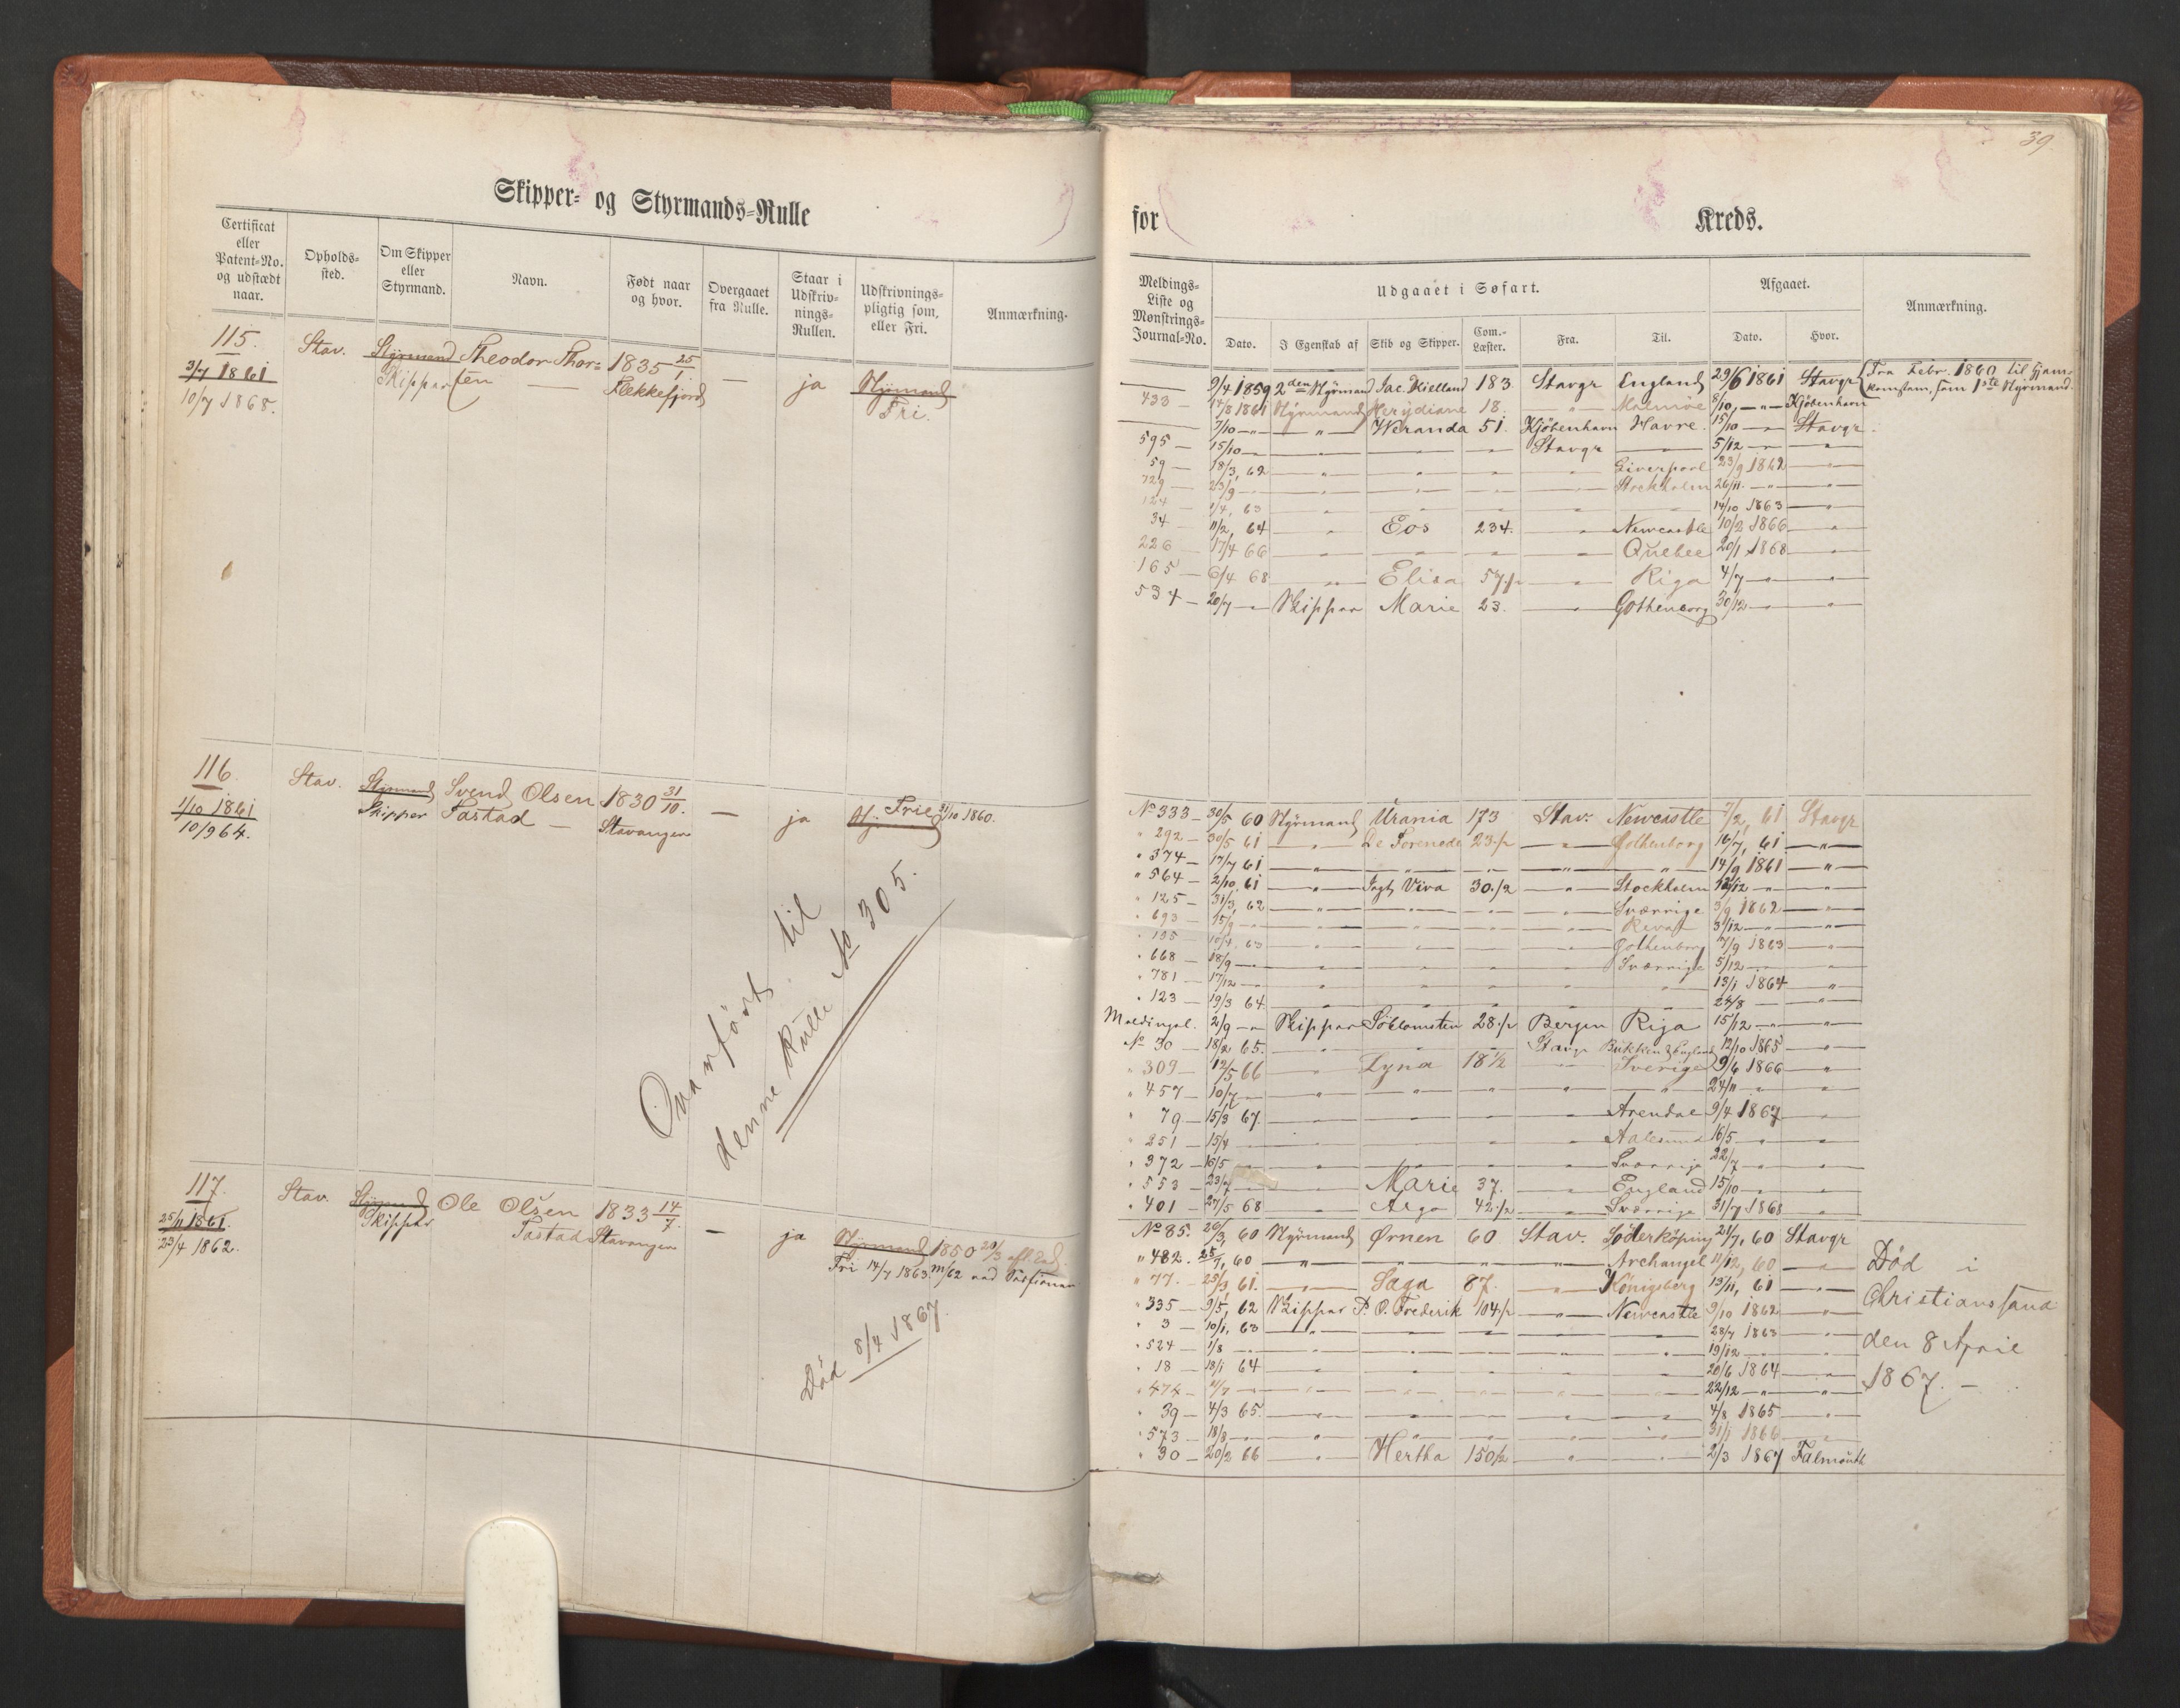 Skipper- og Styrmands-Rulle
Certificat eller Patent-No. og udstædt naar.
Opholds-sted.
Om Skipper eller Styrmand.
Navn.
Født naar og hvor.
Overgaaet fra Rulle.
Staar i Udskriv-nings-Rullen.
Udskrivnings-pligtig som, eller Fri.
Anmærkning.
115. Stav. Styrmand Theodor Thor= 1835 25/1 — ja Styrmand
3/7 1861 Skipper sen — Flekkefjord Fri.
10/7 1868.
116. Stav. Styrmand Svend Olsen 1830 31/10 — ja Frie 31/10 1860.
1/10 1861 Skipper Tastad — Stavanger
10/9 64.
Overført til
denne Rulle No 305.
117. Stav. Styrmand Ole Olsen 1833 14/7 — ja Styrmand 1850 20/3
25/11 1861. Skipper Tastad Stavanger Fri 14/7 1863
23/4 1862.
Død 8/4 1867.
39.
for Kreds.
Meldings-Liste og Mønstrings-Journal-No.
Udgaaet i Søfart.
Dato. I Egenskab af Skib og Skipper. Com.-Læster. Fra. Til.
Afgaaet.
Dato. Hvor.
Anmærkning.
— 9/4 1859 2den Styrmand Jac. Kielland 183. Stavgr England 29/6 1861 Stavgr Fra Febr. 1860 til Hjem-
komsten, som 1ste Styrmand.
433 — 14/8 1861 Styrmand 18. — " — Malmöe 8/10 — " — Kjöbenhavn
7/10 — " — — " — Veranda 51. Kjöbenhavn Havre. 15/10 — " — Stavgr
595 — 15/10 — " — Stavgr — 5/12 — " —
59 — 18/3, 62 — " — Liverpool 23/9 1862 — " —
729 — 23/9 — " — Stockholm 26/11. — " —
124 — 1/4, 63 — " — 14/10 1863 — " —
34 — 11/2, 64 — " — Eos 234. — " — Newcastle 10/2 1866 — " —
226 — 17/4 66 — " — Quebec 20/1 1868 — " —
165 — 6/4 68 — " — Elisa 57 1/2 — " — Riga 4/7 — " —
534 — 20/7 — " — Skipper Marie 23. — " — Gothenborg 30/12 — " —
No 333 — 30/5 60 Styrmand Urania 173 Stav. Newcastle 7/2, 61 Stavgr
" 292 — 30/5 61 — " — De Forenede 23 1/2 — " — Gothenborg 16/7, 61 — " —
" 374 — 17/7 61 — " — 14/9 1861 — " —
" 564 — 2/10 61 — " — Jagt Viva 30 1/2 — " — Stockholm 12/12 — " —
" 125 — 31/3, 62 — " — Sverrige 3/9 1862 — " —
" 693 — 15/9 — " — Reval 3/12 — " —
" 135 — 10/4 63 — " — Gothenborg 7/9 1863 — " —
" 668 — 18/9 — " — Sverrige 5/12 — " —
" 781 — 17/12 — " — 13/1 1864 — " —
" 123 — 19/3 64 — " — 24/8 — " —
Meldingsl. 2/9 — " — Skipper Söblomsten 28 1/2 Bergen Riga 15/12 — " —
No 30 — 18/2 65. — " — Stavgr England 12/10 1865 — " —
" 309 — 12/5 66 — " — Lyna 18 1/2 Sverige 9/6 1866 — " —
" 457 — 10/7 — " — 24/11 — " —
" 79 — 15/3 67. — " — Arendal 9/4 1867 — " —
" 251 — 15/4 — " — Aalesund 16/5 — " —
" 372 — 16/5 — " — Sverrige 22/7 — " —
" 553 — 23/7 — " — Marie 37. — " — England 15/10 — " —
" 401 — 27/5 68 — " — Argo 42 1/2 — " — Sverrige 31/7 1868 — " —
No 85. 20/3, 60 Styrmand Ørnen 60 Stav. Söderköping 21/7, 60 Stavgr
" 482. 25/7, 60 — " — Archangel 11/12, 60 — " — Död i
" 77. — 23/3 61. — " — Saga 87. — " — Königsberg 13/11, 61 — " — Christianssand
" 335 — 9/5, 62 Skipper P. O. Frederik 104 1/2 — " — Newcastle 9/10 1862 — " —
" 3 — 10/1, 63 — " — 28/7 1863 — " — den 8 April
" 524 — 1/8 — " — 19/12 — " —
" 18 — 18/1 64 — " — 20/6 1864 — " — 1867. —
" 474 — — " — 22/12 — " —
" 39 — 4/3 65. — " — 4/8 1865 — " —
" 573 — 18/8 — " — 31/1 1866 — " —
" 30 — 20/2 66 — " — Hertha 150 1/2 — " — 2/3 1867 Falmouth